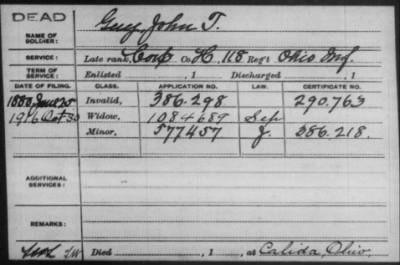 DEAD
NAME OF SOLDIER: Guy John T.
SERVICE: Late rank, Corp Co. H, 118 Reg't Ohio Inf.
TERM OF SERVICE: Enlisted , 1 Discharged , 1
DATE OF FILING. CLASS. APPLICATION NO. LAW. CERTIFICATE NO.
1880, June 25 Invalid, 386.298 290,763
1916 Oct 30 Widow, 1084689 Sep
Minor, 577457 J. 386.218.
ADDITIONAL SERVICES:
REMARKS:
Died , 1 , at Calida, Ohio.